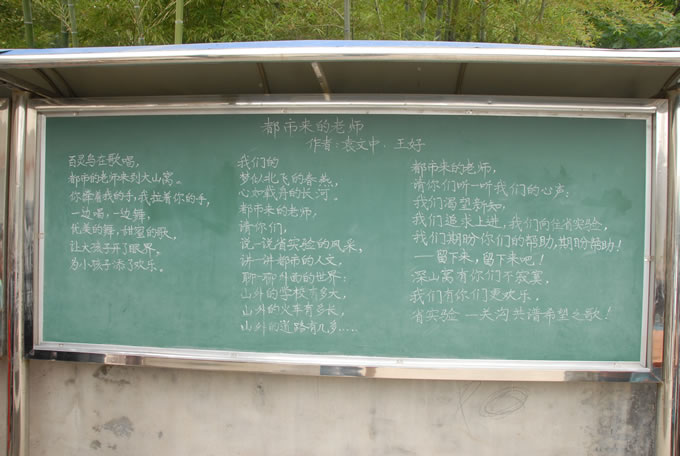 都市来的老师
作者:袁文中、王好
百灵鸟在歌唱,
都市的老师来到大山窝。
你牵着我的手,我拉着你的手,
一边唱,一边舞,
优美的舞,甜蜜的歌,
让大孩子开了眼界,
为小孩子添了欢乐。
我们的
梦似北飞的春燕,
心如载舟的长河。
都市来的老师,
请你们,
说一说省实验的风采,
讲一讲都市的人文,
聊一聊外面的世界:
山外的学校有多大,
山外的火车有多长,
山外的道路有几多……
都市来的老师,
请你们听一听我们的心声:
我们渴望新知,
我们追求上进,我们向往省实验,
我们期盼你们的帮助,期盼帮助!
——留下来,留下来吧!
深山窝有你们不寂寞,
我们有你们更欢乐.
省实验 一关沟共谱希望之歌!